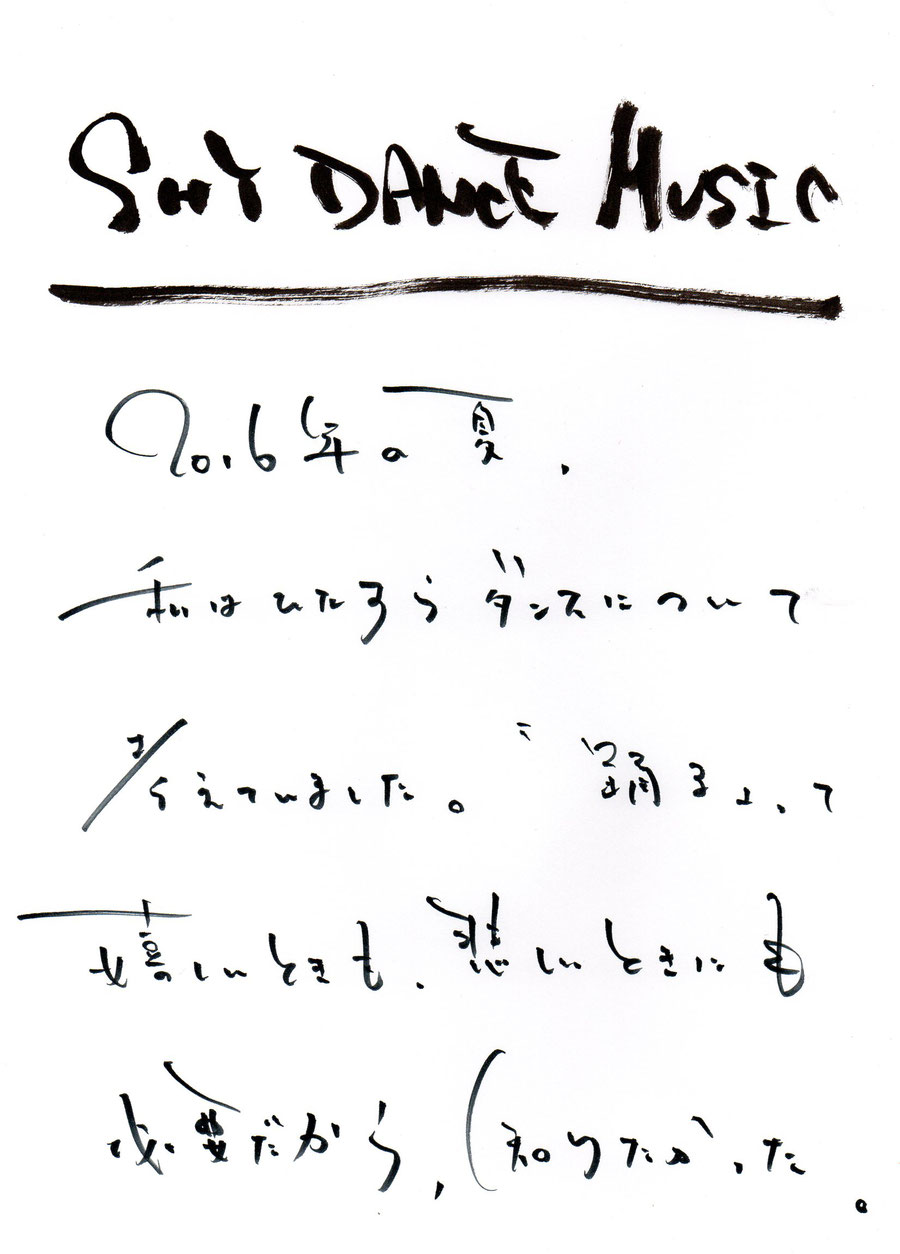 SHY DANCE MUSIC
2016年の夏、
私はひたすらダンスについて
考えていました。 踊るよって
嬉しいときも、悲しいときにも
必要だから、(知りたかった